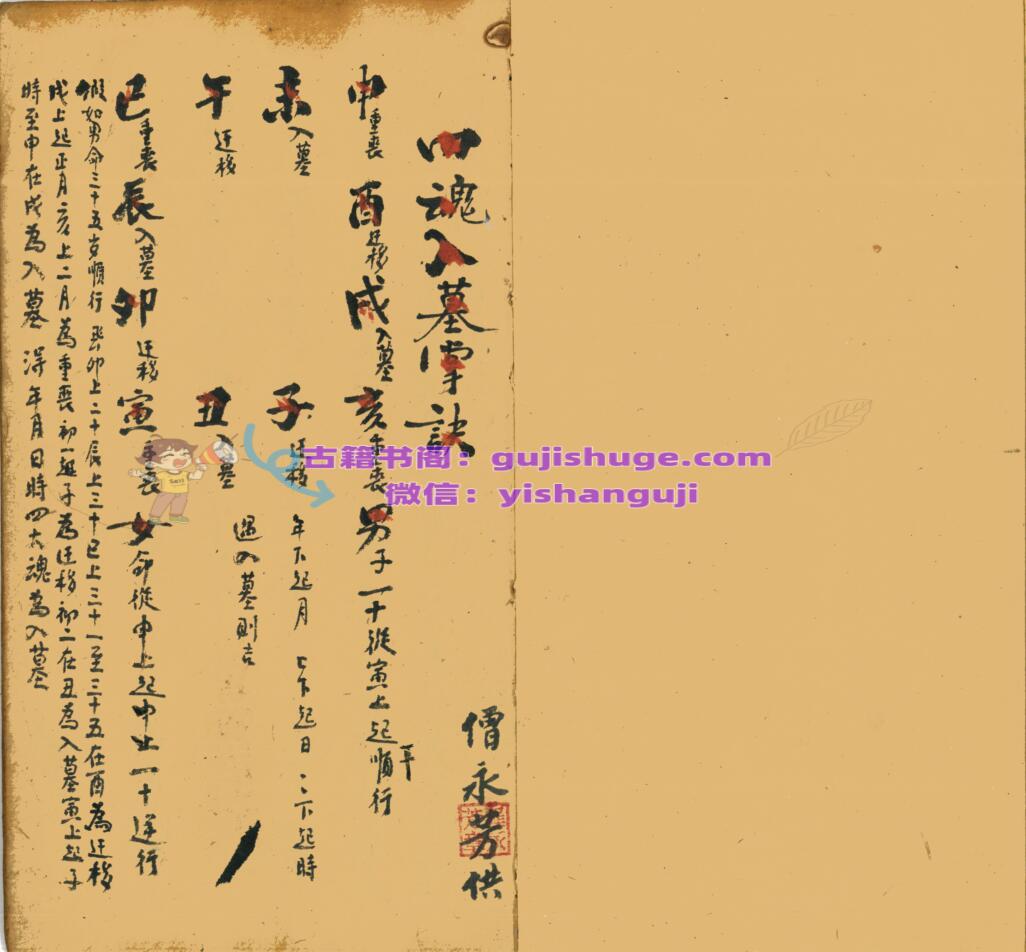 四魂入墓掌訣
僧永芳供
申重喪 酉迁移 戌入墓 亥重喪 男子一十從寅上起順行
一年
未入墓 子迁移 年下起月 月下起日 日下起時
午迁移 丑入墓 遇入墓則吉
巳重喪 辰入墓 卯迁移 寅重喪 女命從申上起申上一十逆行
假如男命三十五岁順行 癸卯上二十辰上三十巳上三十一至三十五在酉為迁移
戌上起正月亥上二月為重喪初一與子為迁移初二在丑為入墓寅上起子
時至申在戌為入墓 得年月日時四大魂為入墓
古籍书阁：gujishuge.com
微信：yishanguji